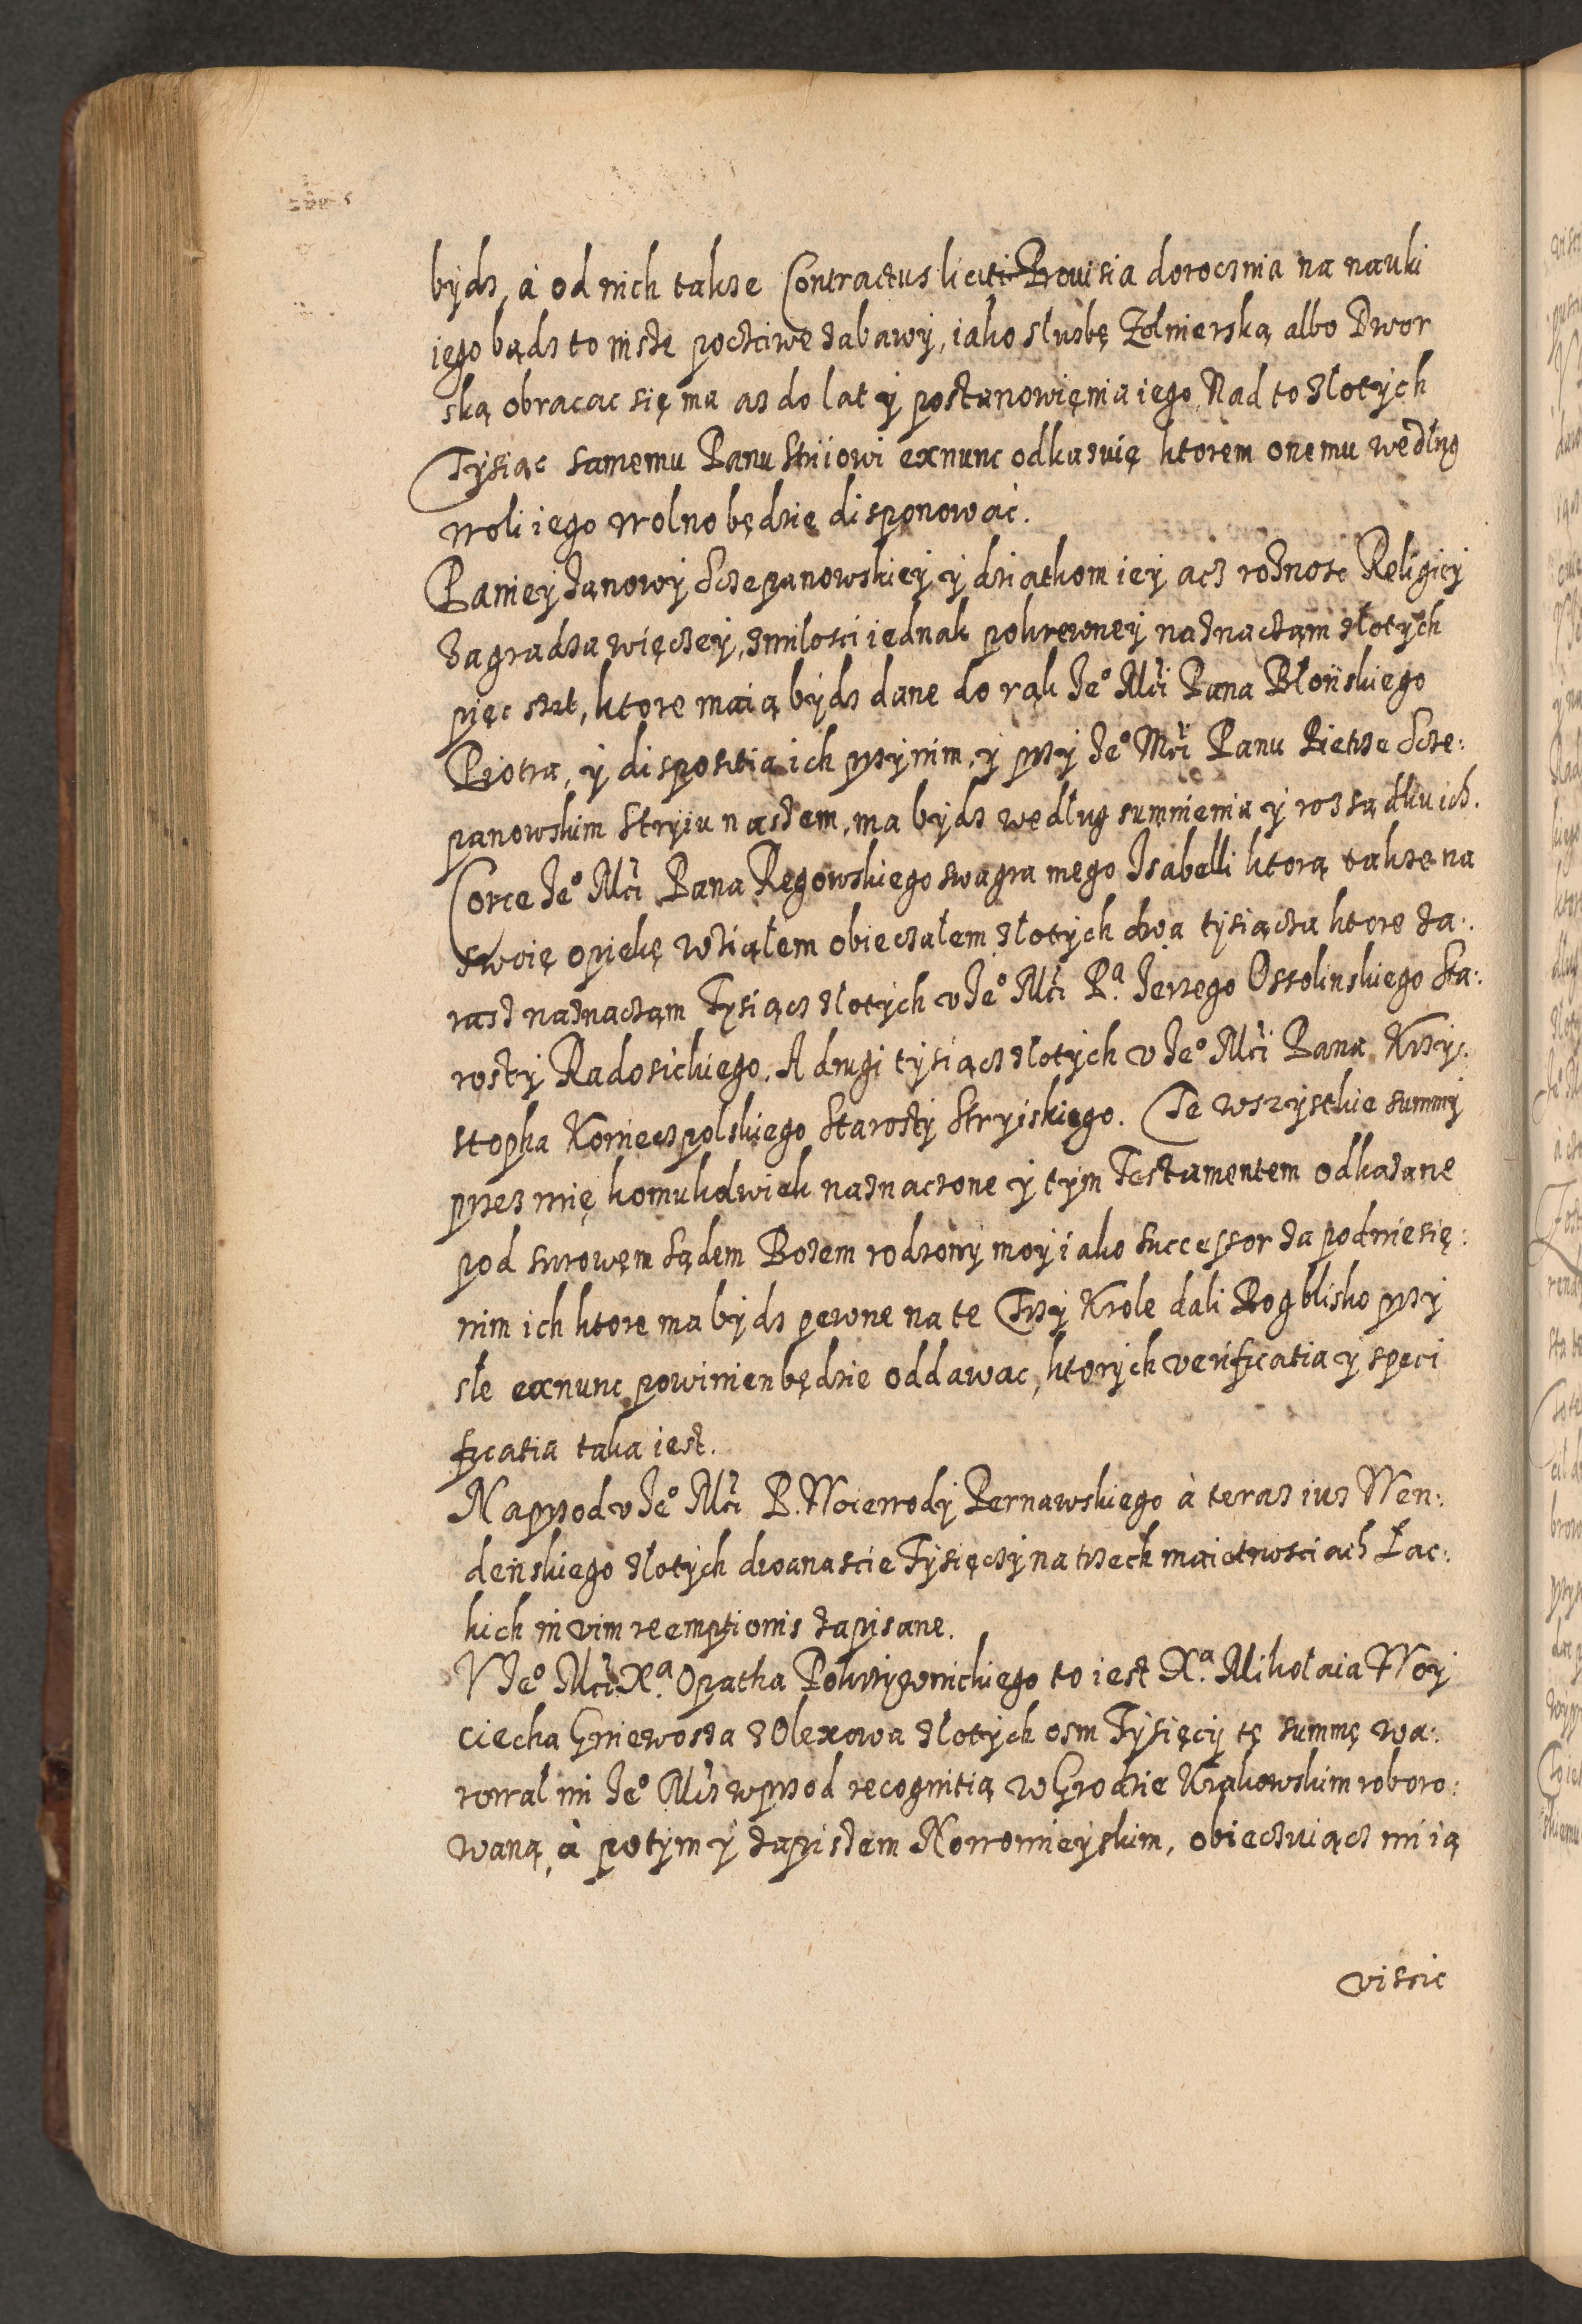 bydz, á od nich takze Contractus liciti Prouisia dorocznia na nauki
iego bądz to insze poczciwe zabawy, iako służbę Żołnierską albo Dwor
ską obracac się ma az do lat y postanowięnia iego, Nad to złotych
Tysiąc samemu Panu Stiiowi exnunc odkazuię ktorem onemu według
woli iego wolno będzie disponować.
Paniey Janowy Sczepanowskiey y dziatkom iey acz rożnosc Religiey
zagradza więczey, z miłosci iednak pokrewney naznaczam złotych
pięc szet, ktore maią bydz dane do rąk Je° Mći Pana Błońskiego
Piotra, y dispositia ich przy nim, y przy Je° Mći Panu Pietrze Scze:
panowskim Stryiu naszem, ma bydz według sumnienia y rozsądku ich.
Corce Je° Mći Pana Regowskiego swagra mego Isabelli ktorą takze na
swoię opiekę wziąłem obieczałem złotych dwa tysiącza ktore za:
raz naznaczam Tysiącz złotych v Je° Mći P.ª Jerzego Ossolinskiego Sta:
rosty Radosickiego. A drugi tysiącz złotych v Je° Mći Pana Krzy:
stopha Koniecpolskiego Starosty Stryiskiego. Te wszystkie summy
przez mię komukolwiek naznaczone y tym Testamentem odkazane
pod surowęm Sądem Bożem rodzony moy iako Successor za podniesię:
nim ich ktore ma bydz pewne na te Trzy Krole da li Bog blisko przy
sle exnunc powinien będzie oddawac, ktorych verificatia y speci
ficatia taka iest.
Naprzod v Je° Mći P. Woiewody Pernawskiego à teraz iuz Wen:
deńskiego złotych dwanascie Tysięczy na trzech maiętnosciach Łac:
kich in vim reemptionis zapisane.
V Je° Mći X.ª Opatha Pokrzywnickiego to iest X.ª Mikołaia Woy
ciecha Gniewosza z Olexowa złotych osm Tysięcy tę summę wa:
rował mi Je° Mćz wprzod recognitią w Grodzie Krakowskim roboro:
waną, à potym y zapiszem Nowomieyskim, obieczuiącz mi ią
viscic